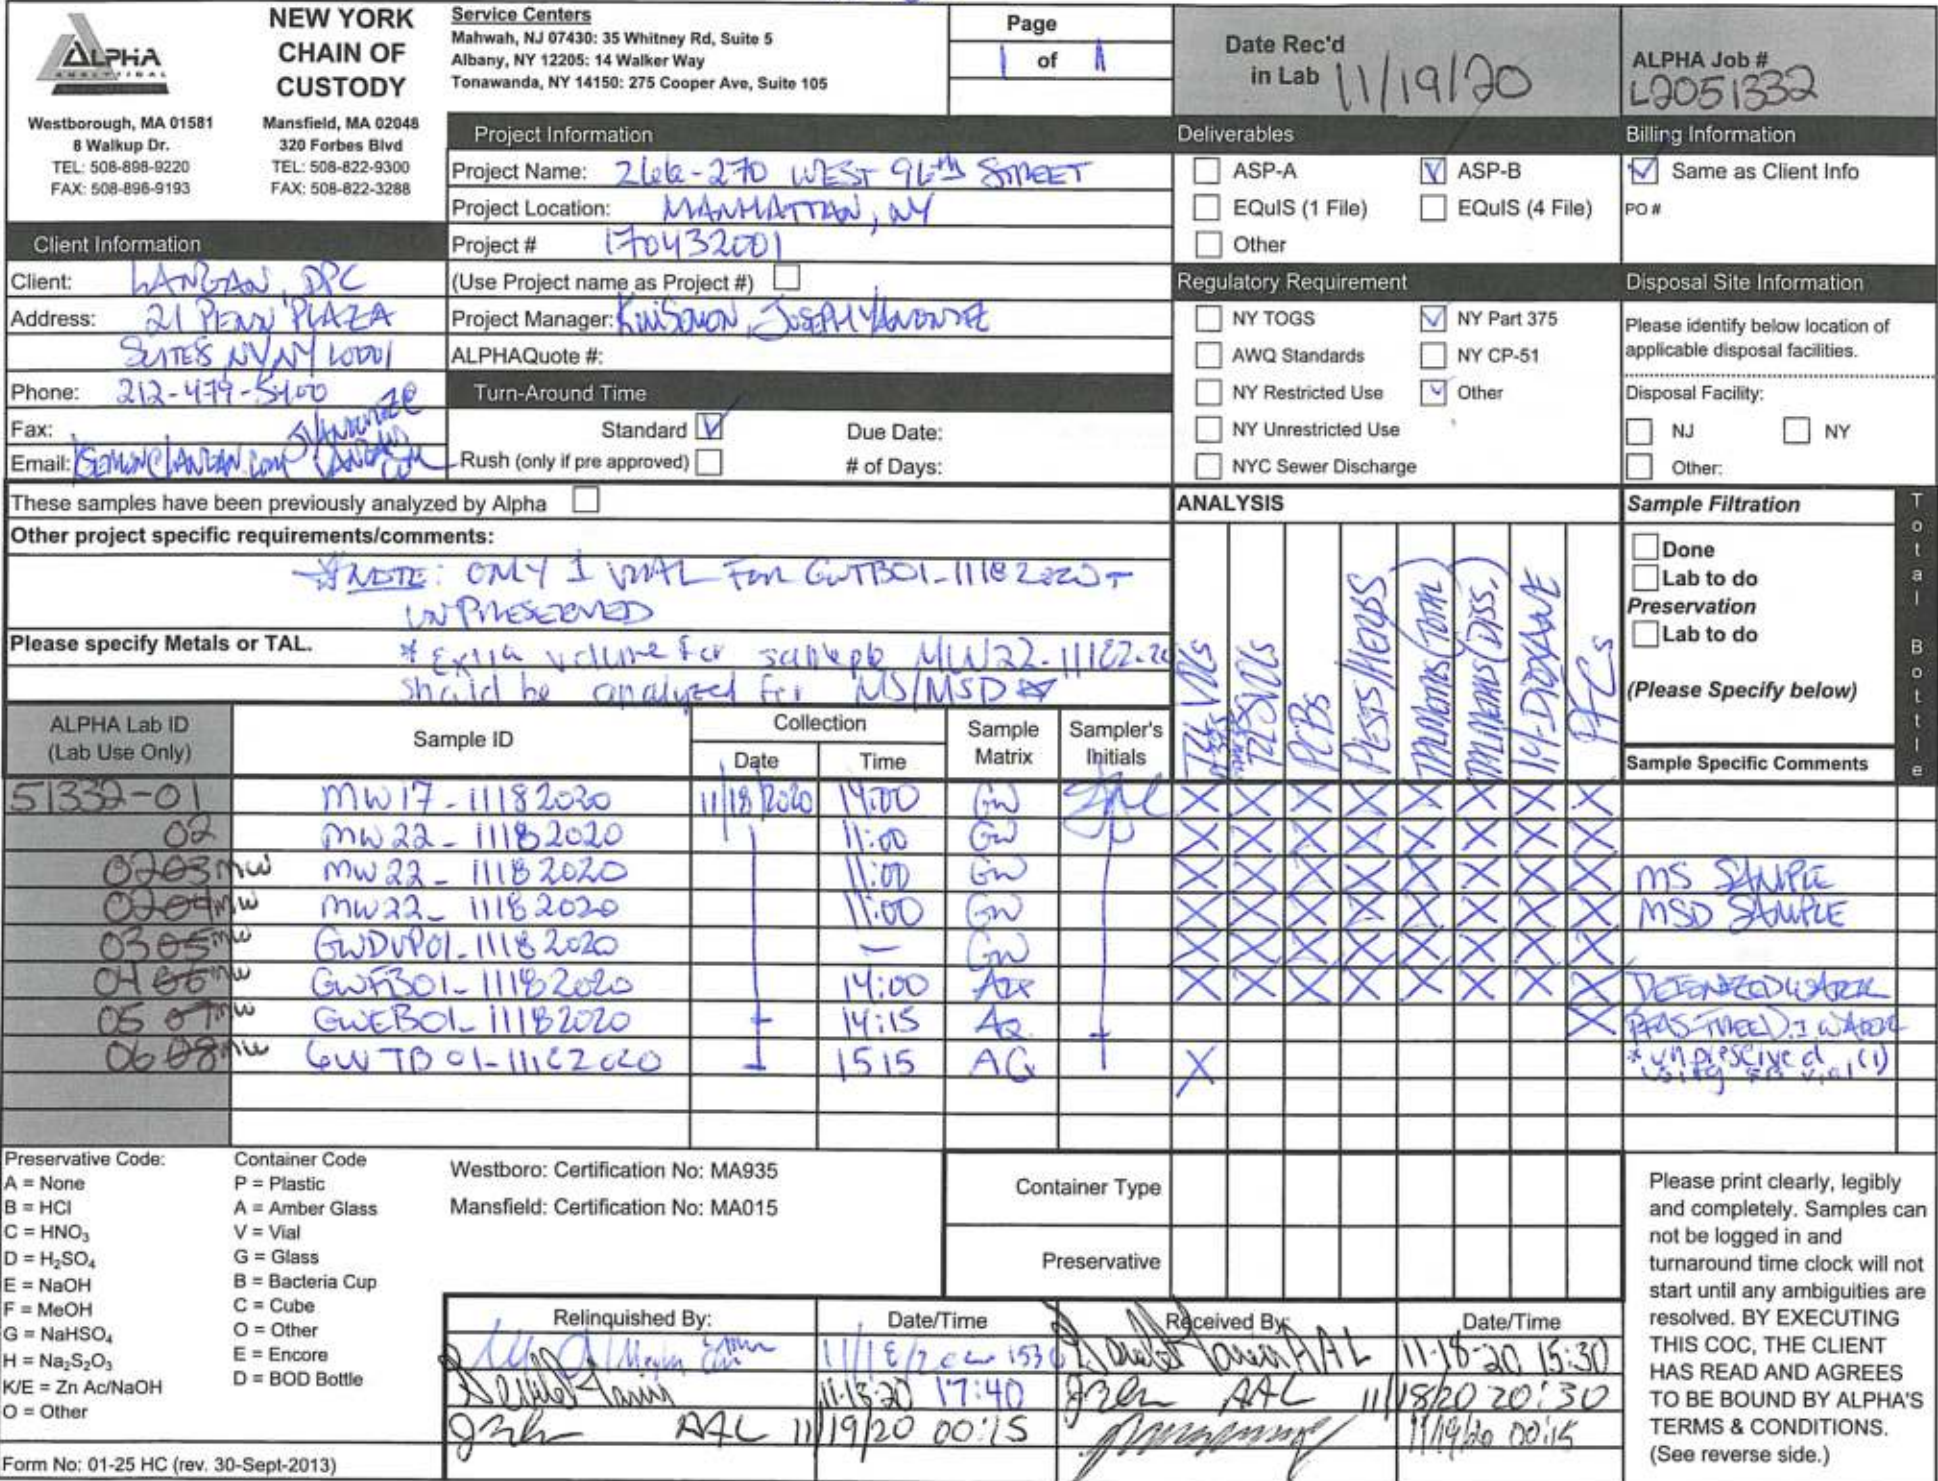 ALPHA
ANALYTICAL
NEW YORK
CHAIN OF
CUSTODY
Westborough, MA 01581
8 Walkup Dr.
TEL: 508-898-9220
FAX: 508-898-9193
Mansfield, MA 02048
320 Forbes Blvd
TEL: 508-822-9300
FAX: 508-822-3288
Service Centers
Mahwah, NJ 07430: 35 Whitney Rd, Suite 5
Albany, NY 12205: 14 Walker Way
Tonawanda, NY 14150: 275 Cooper Ave, Suite 105
Page
1 of 1
Date Rec'd
in Lab 11/19/20
ALPHA Job #
L2051332
Client Information
Client: LANGAN, DPC
Address: 21 PENN PLAZA
NY NY 10001
Phone: 212-479-5400
Fax:
Email:
Project Information
Project Name: 266-270 WEST 96th STREET
Project Location: MANHATTAN, NY
Project # 170432001
(Use Project name as Project #)
Project Manager: JOSEPH YANOWITZ
ALPHAQuote #:
Turn-Around Time
Standard
Due Date:
Rush (only if pre approved)
# of Days:
Deliverables
ASP-A ASP-B
EQuIS (1 File) EQuIS (4 File)
Other
Regulatory Requirement
NY TOGS NY Part 375
AWQ Standards NY CP-51
NY Restricted Use Other
NY Unrestricted Use
NYC Sewer Discharge
Billing Information
Same as Client Info
PO #
Disposal Site Information
Please identify below location of
applicable disposal facilities.
Disposal Facility:
NJ NY
Other:
These samples have been previously analyzed by Alpha
Other project specific requirements/comments:
*NOTE: ONLY 1 VIAL FOR GWTB01-11182020 -
UNPRESERVED
Please specify Metals or TAL.
* Extra volume for sample MW22-111820
should be analyzed for MS/MSD *
ANALYSIS
TCL VOCs
TCL SVOCs
PCBs
PESTS/HERBS
TAL Metals (TOTAL)
TAL Metals (DISS.)
1,4-DIOXANE
PFCs
Sample Filtration
Done
Lab to do
Preservation
Lab to do
(Please Specify below)
Total Bottle
ALPHA Lab ID
(Lab Use Only)
Sample ID
Collection
Date Time
Sample
Matrix
Sampler's
Initials
Sample Specific Comments
51332-01 MW17-11182020 11/18/2020 14:00 GW X X X X X X X X
02 MW22-11182020 11:00 GW X X X X X X X X
02 03 MW MW22-11182020 11:00 GW X X X X X X X X MS SAMPLE
02 04 MW MW22-11182020 11:00 GW X X X X X X X X MSD SAMPLE
03 05 MW GWDUP01-11182020 — GW X X X X X X X X
04 06 MW GWFB01-11182020 14:00 X X X X X X X X DEIONIZED WATER
05 07 MW GWEB01-11182020 14:15 AQ X PFAS FREE D.I WATER
06 08 MW GWTB01-11182020 1515 AQ X * unpreserved (1) vial
Preservative Code:
A = None
B = HCl
C = HNO3
D = H2SO4
E = NaOH
F = MeOH
G = NaHSO4
H = Na2S2O3
K/E = Zn Ac/NaOH
O = Other
Container Code
P = Plastic
A = Amber Glass
V = Vial
G = Glass
B = Bacteria Cup
C = Cube
O = Other
E = Encore
D = BOD Bottle
Westboro: Certification No: MA935
Mansfield: Certification No: MA015
Container Type
Preservative
Relinquished By: Date/Time Received By: Date/Time
11/18/2020 1530 AAL 11-18-20 15:30
11-18-20 17:40 AAL 11/18/20 20:30
AAL 11/19/20 00:15 11/19/20 00:15
Please print clearly, legibly
and completely. Samples can
not be logged in and
turnaround time clock will not
start until any ambiguities are
resolved. BY EXECUTING
THIS COC, THE CLIENT
HAS READ AND AGREES
TO BE BOUND BY ALPHA'S
TERMS & CONDITIONS.
(See reverse side.)
Form No: 01-25 HC (rev. 30-Sept-2013)